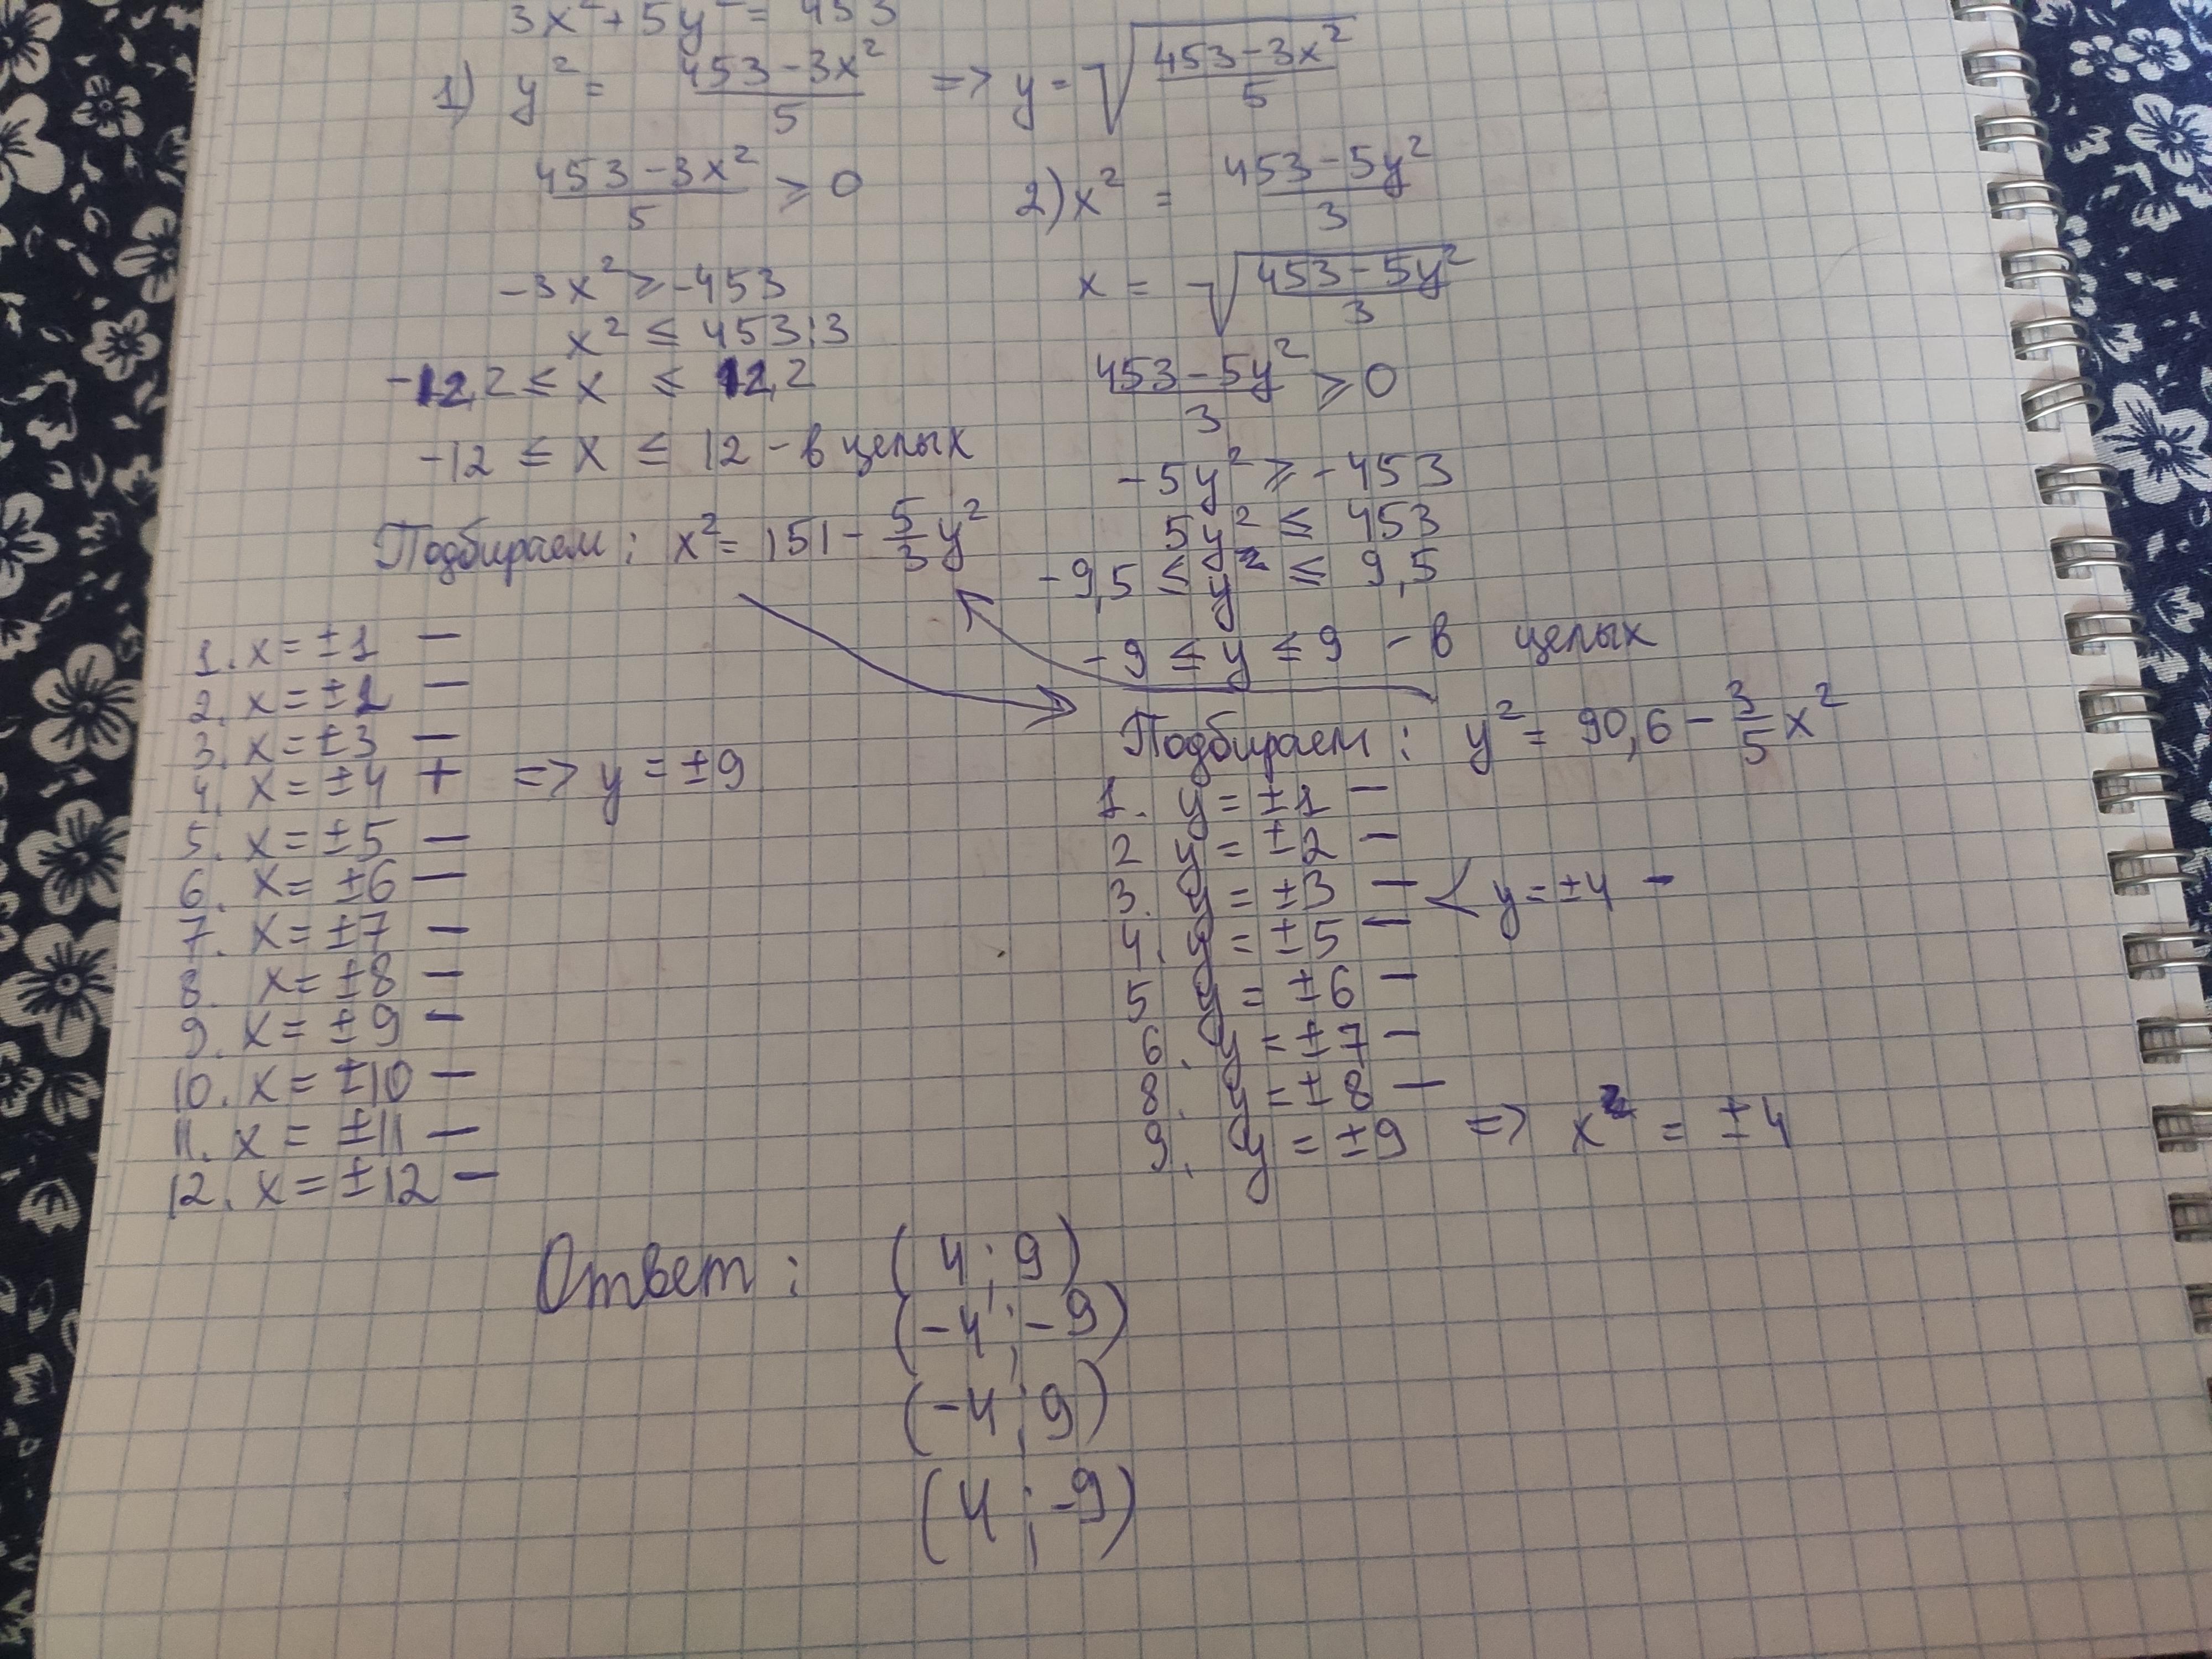 3x² + 5y² = 453
1) y² = (453 - 3x²)/5 => y = √((453 - 3x²)/5)
(453 - 3x²)/5 ⩾ 0
-3x² ⩾ -453
x² ≤ 453:3
-12,2 ≤ x ≤ 12,2
-12 ≤ x ≤ 12 - в целых
Подбираем: x² = 151 - 5/3 y²
1. x = ±1 —
2. x = ±2 —
3. x = ±3 —
4. x = ±4 + => y = ±9
5. x = ±5 —
6. x = ±6 —
7. x = ±7 —
8. x = ±8 —
9. x = ±9 —
10. x = ±10 —
11. x = ±11 —
12. x = ±12 —
2) x² = (453 - 5y²)/3
x = √((453 - 5y²)/3)
(453 - 5y²)/3 ⩾ 0
-5y² ⩾ -453
5y² ≤ 453
-9,5 ≤ y ≤ 9,5
-9 ≤ y ≤ 9 - в целых
Подбираем: y² = 90,6 - 3/5 x²
1. y = ±1 —
2 y = ±2 —
3. y = ±3 — < y = ±4 -
4. y = ±5 —
5 y = ±6 —
6. y = ±7 —
8. y = ±8 —
9. y = ±9 => x = ±4
Ответ: (4; 9)
(-4; -9)
(-4; 9)
(4; -9)